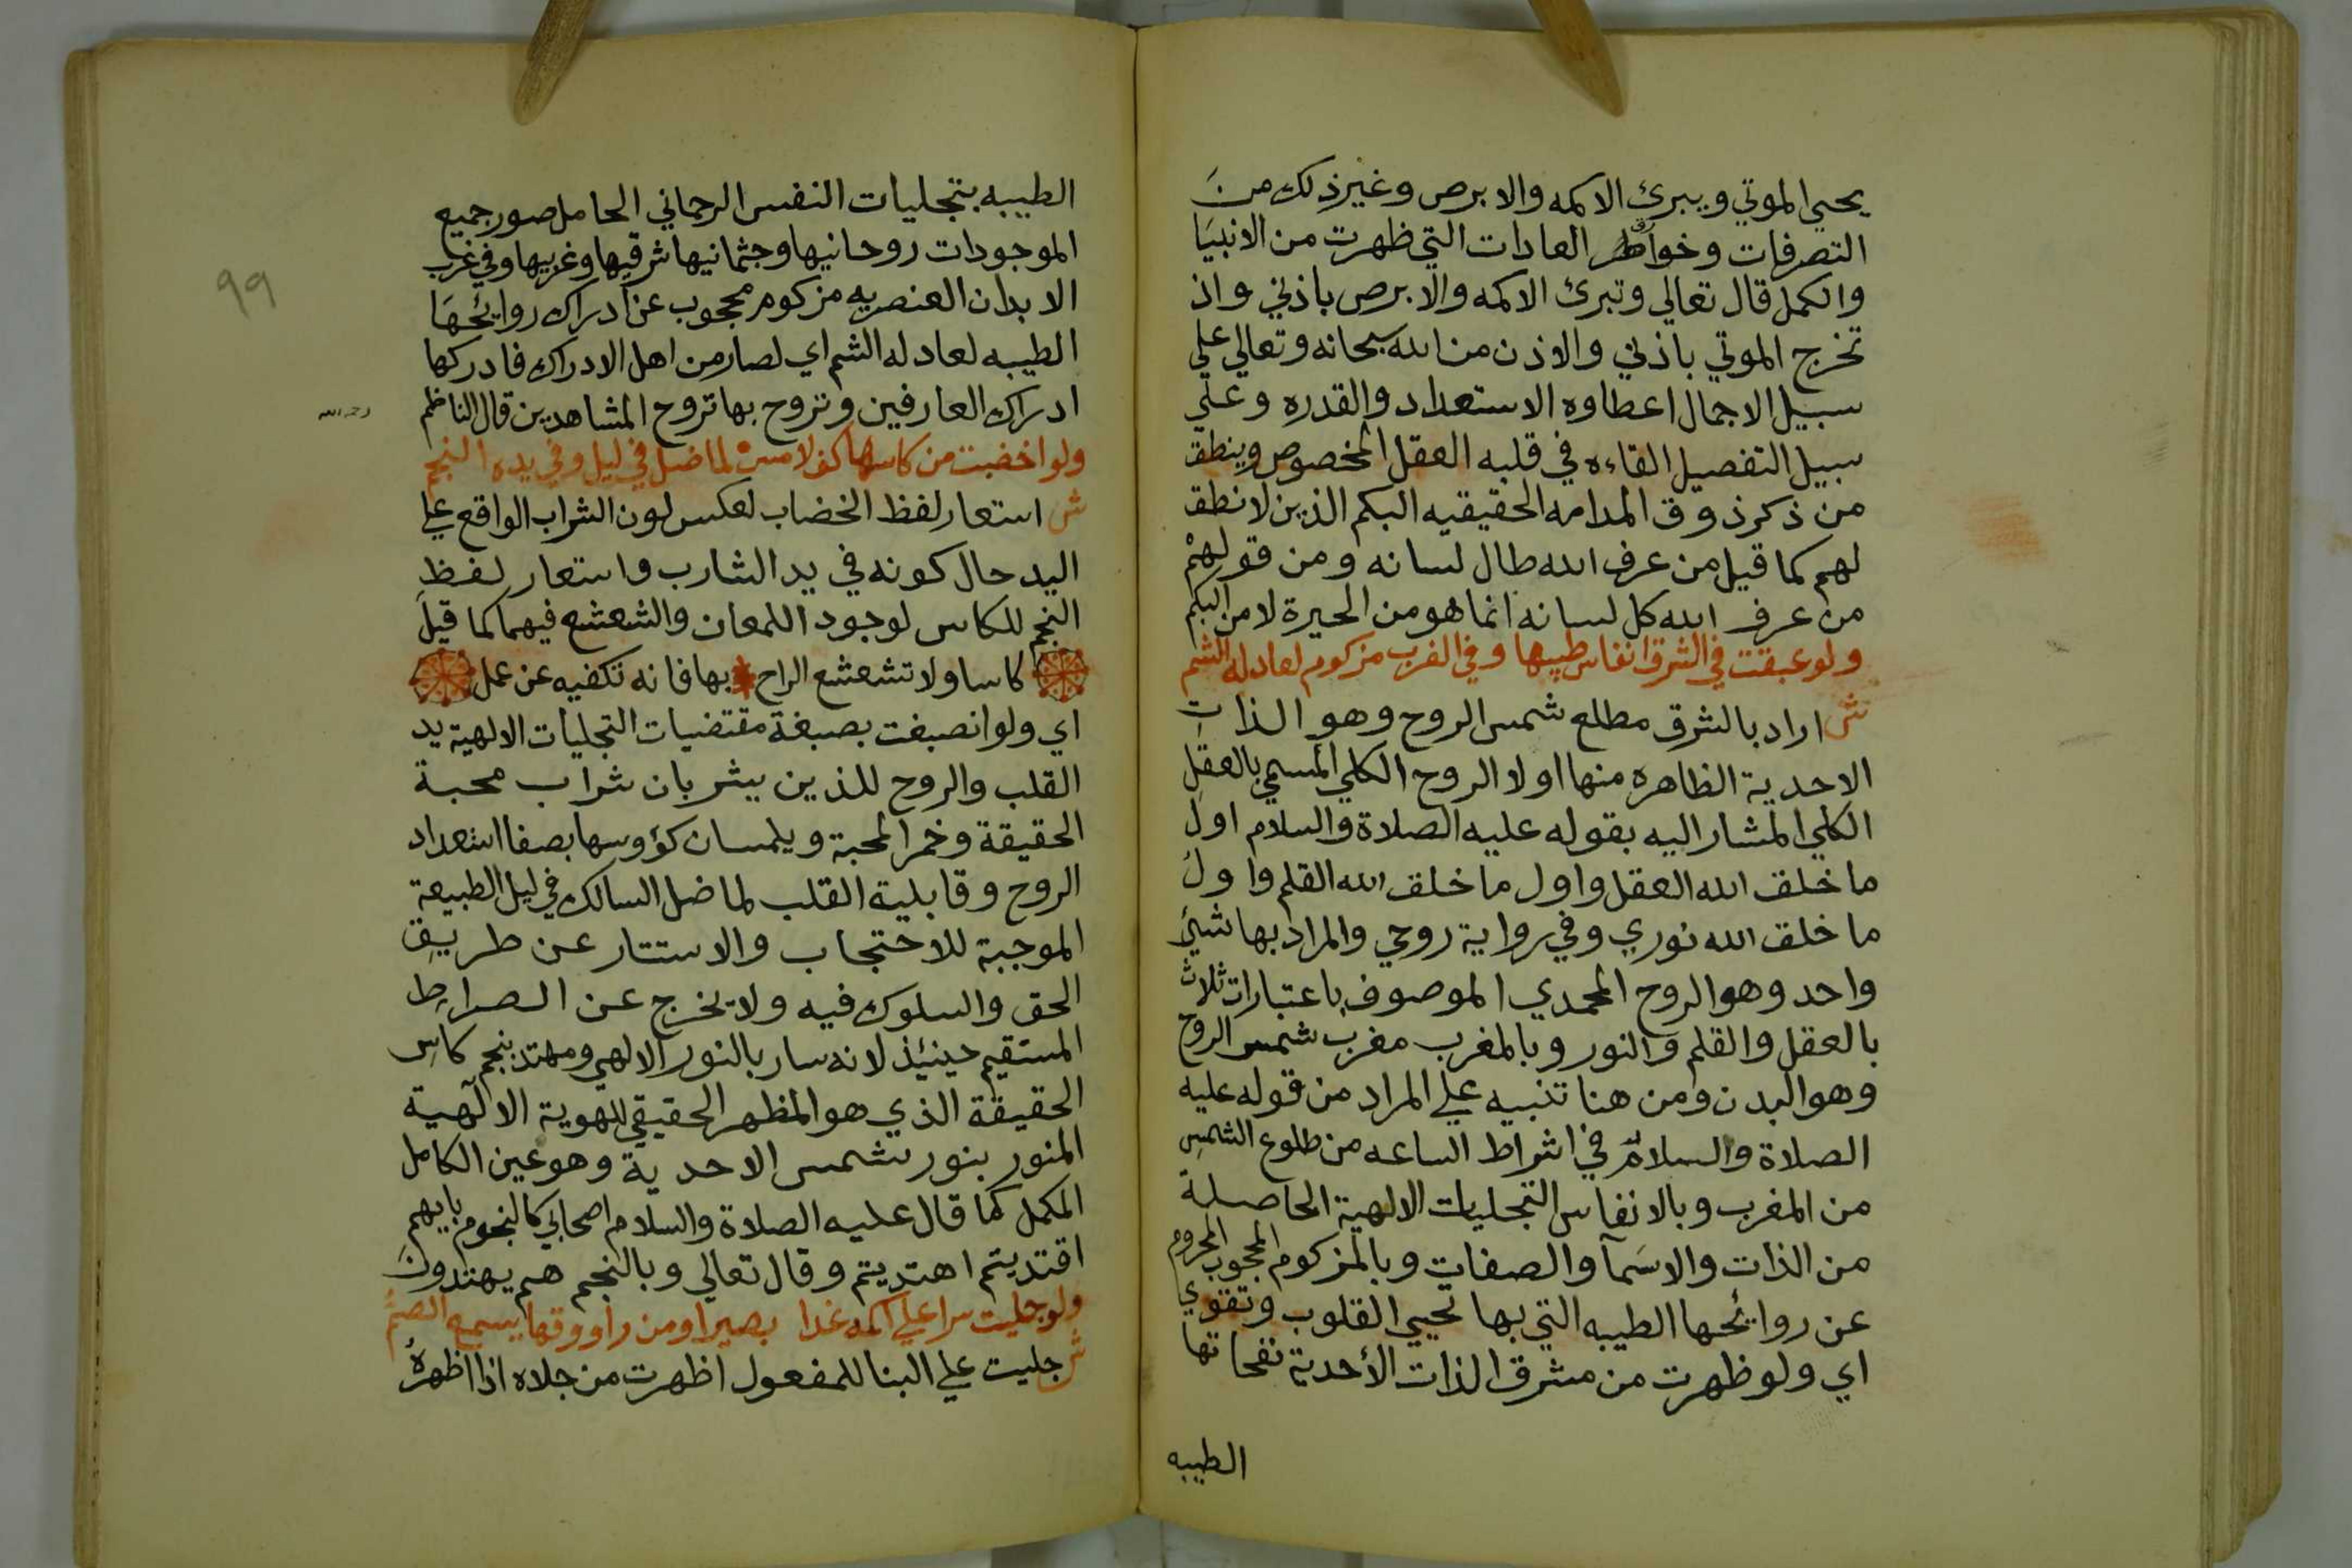 يحيي الموتي ويبرئ الاكمه والابرص وغير ذلك من
التصرفات وخوارق العادات التي ظهرت من الانبيا
والكمل قال تعالي وتبرئ الاكمه والابرص باذني واذ
تخرج الموتي باذني والاذن من الله سبحانه وتعالي علي
سبيل الاجمال اعطاوه الاستعداد والقدره وعلي
سبيل التفصيل القاءه في قلبه العقل المخصوص وينطق
من ذكر ذوق المدامه الحقيقيه البكم الذين لا نطق
لهم كما قيل من عرف الله طال لسانه ومن قولهم
من عرف الله كل لسانه انما هو من الحيرة لا من البكم
ولو عبقت في الشرق انفاس طيبها وفي الغرب مزكوم لعاد له الشم
ش اراد بالشرق مطلع شمس الروح وهو الذات
الاحدية الظاهره منها اولا الروح الكلي المسمي بالعقل
الكلي المشار اليه بقوله عليه الصلاة والسلام اول
ما خلق الله العقل واول ما خلق الله القلم واول
ما خلق الله نوري وفي رواية روحي والمراد بها شيئ
واحد وهو الروح المحمدي الموصوف باعتبارات ثلاث
بالعقل والقلم والنور وبالمغرب مغرب شمس الروح
وهو البدن ومن هنا تنبيه علي المراد من قوله عليه
الصلاة والسلام في اشراط الساعه من طلوع الشمس
من المغرب وبالانفاس التجليات الالهية الحاصلة
من الذات والاسمآ والصفات وبالمزكوم المحجوب المحروم
عن روائحها الطيبه التي بها تحيي القلوب وتقوي
اي ولو ظهرت من مشرق الذات الأحدية نفحاتها
الطيبه
الطيبه بتجليات النفس الرحماني الحامل صور جميع
الموجودات روحانيها وجثمانيها شرقيها وغربيها وفي غرب
الابدان العنصريه مزكوم محجوب عن ادراك روائحها
الطيبه لعاد له الشم اي لصار من اهل الادراك فادركها
ادراك العارفين وتروح بها تروح المشاهدين قال الناظم
رحمه الله
ولو اخضبت من كاسها كف لامس لما ضل في ليل وفي يده النجم
ش استعار لفظ الخضاب لعكس لون الشراب الواقع علي
اليد حال كونه في يد الشارب واستعار لفظ
النجم للكاس لوجود اللمعان والشعشع فيهما كما قيل
كاسا ولا تشعشع الراح بها فانه تكفيه عن عمل
اي ولو انصبغت بصبغة مقتضيات التجليات الالهية يد
القلب والروح للذين يشربان شراب محبة
الحقيقة وخمر المحبة ويلمسان كؤوسها بصفا استعداد
الروح وقابلية القلب لما ضل السالك في ليل الطبيعة
الموجبة للاحتجاب والاستتار عن طريق
الحق والسلوك فيه ولا تخرج عن الصراط
المستقيم حينئذ لانه سار بالنور الالهي ومهتد بنجم كاس
الحقيقة الذي هو المظهر الحقيقي للهوية الالهية
المنور بنور شمس الاحدية وهو عين الكامل
المكمل كما قال عليه الصلاة والسلام اصحابي كالنجوم بايهم
اقتديتم اهتديتم وقال تعالي وبالنجم هم يهتدون
ولو جليت سرا علي اكمه غدا بصيرا ومن راووقها يسمع الصم
ش جليت علي البنا للمفعول اظهرت من جلاه اذا اظهره
٩٩